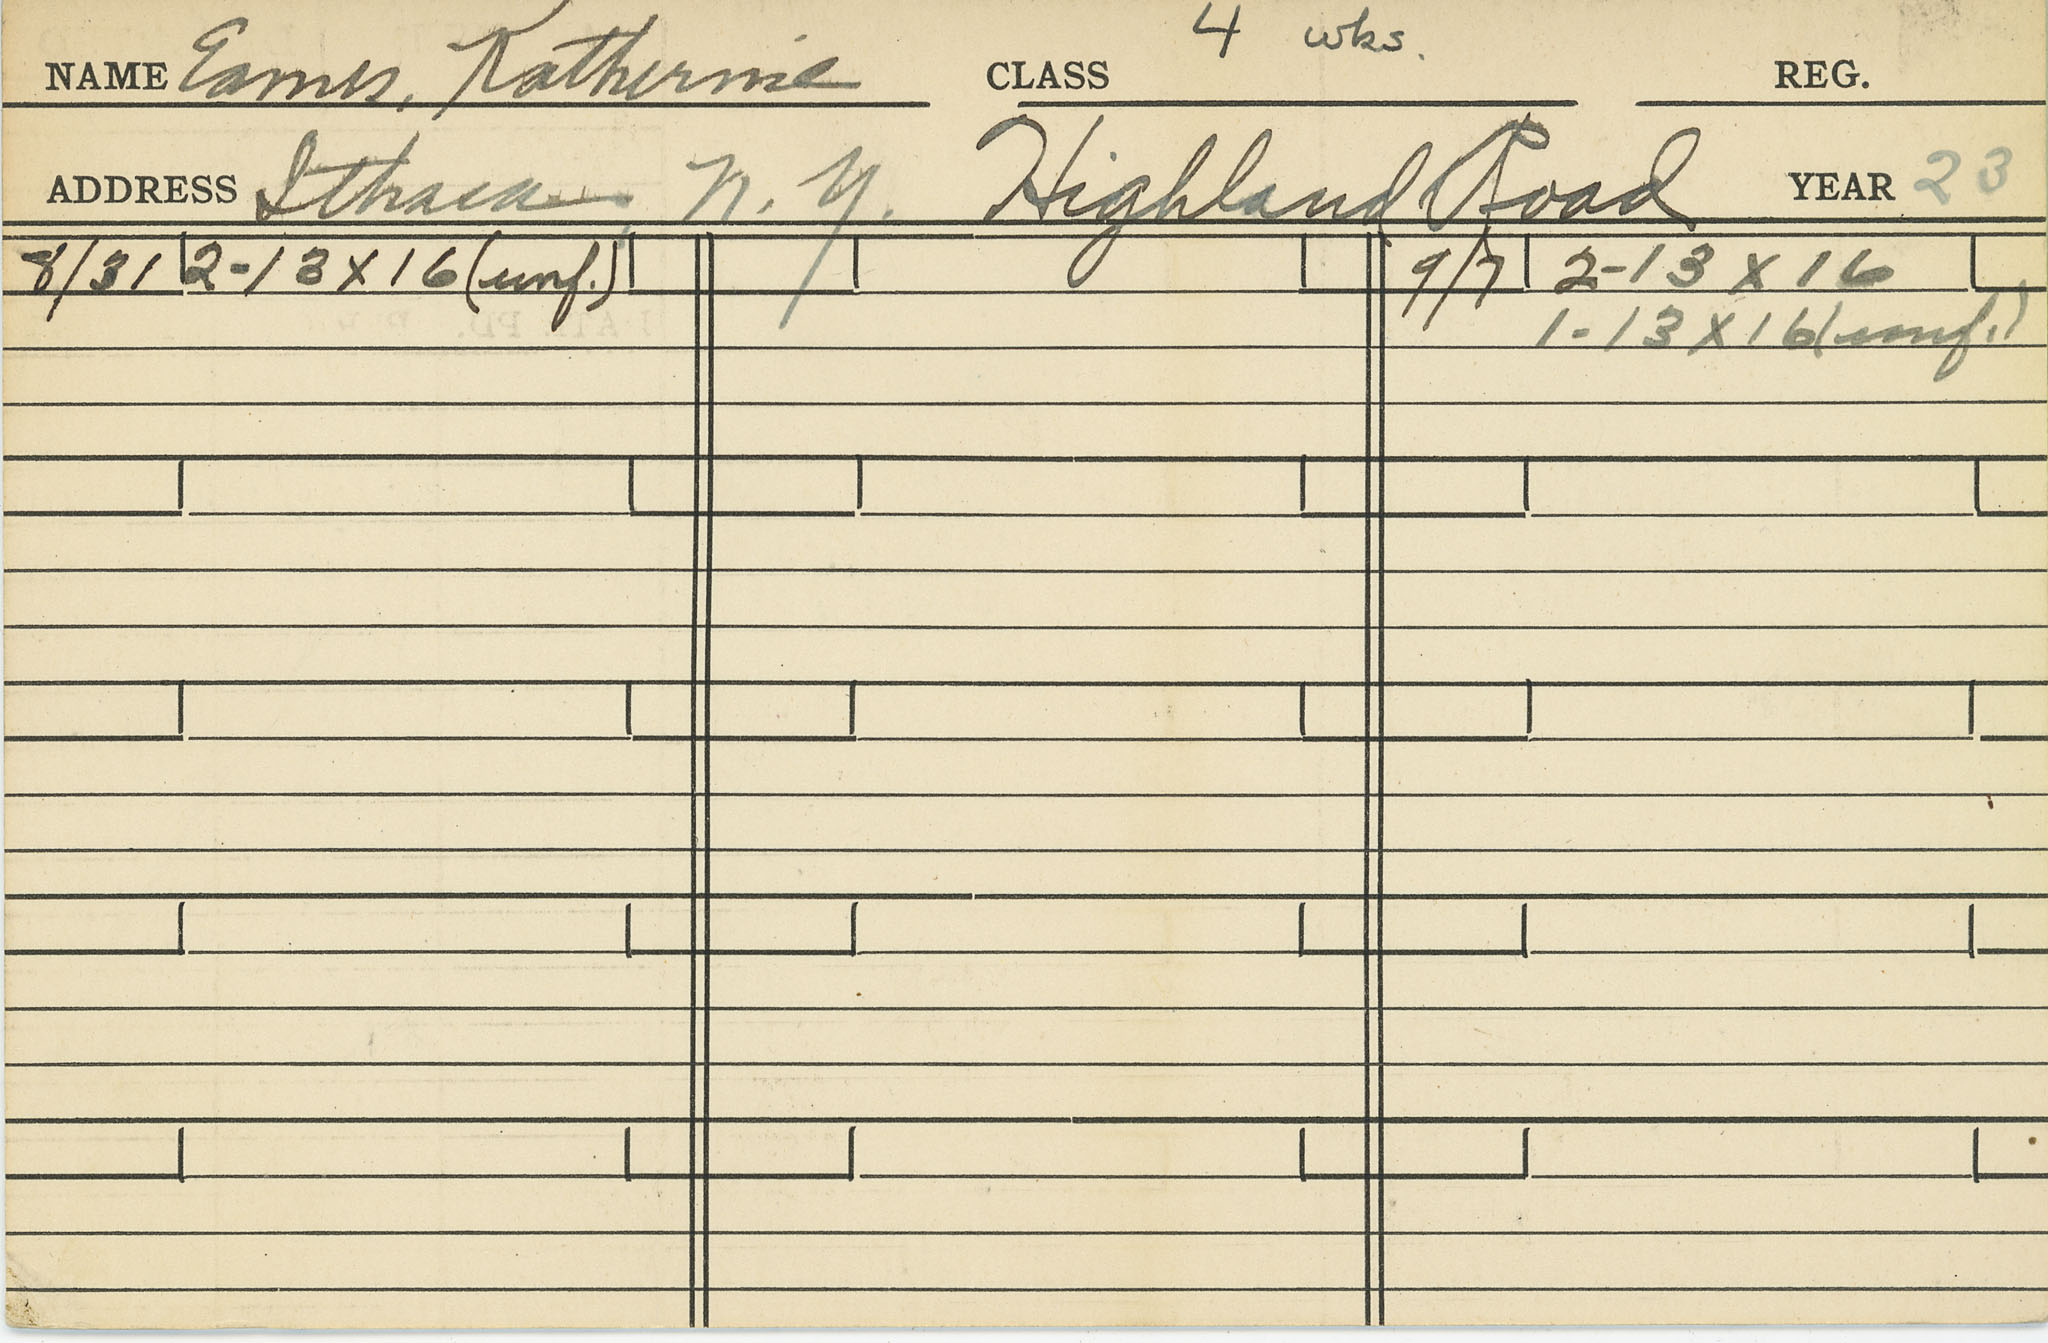 NAME Eames, Katherine CLASS 4 wks. REG.
ADDRESS Ithaca, N.Y. Highland Road YEAR 23
8/31 2-13 x 16 (unf.) 9/7 2-13 x 16
1-13 x 16 (unf.)